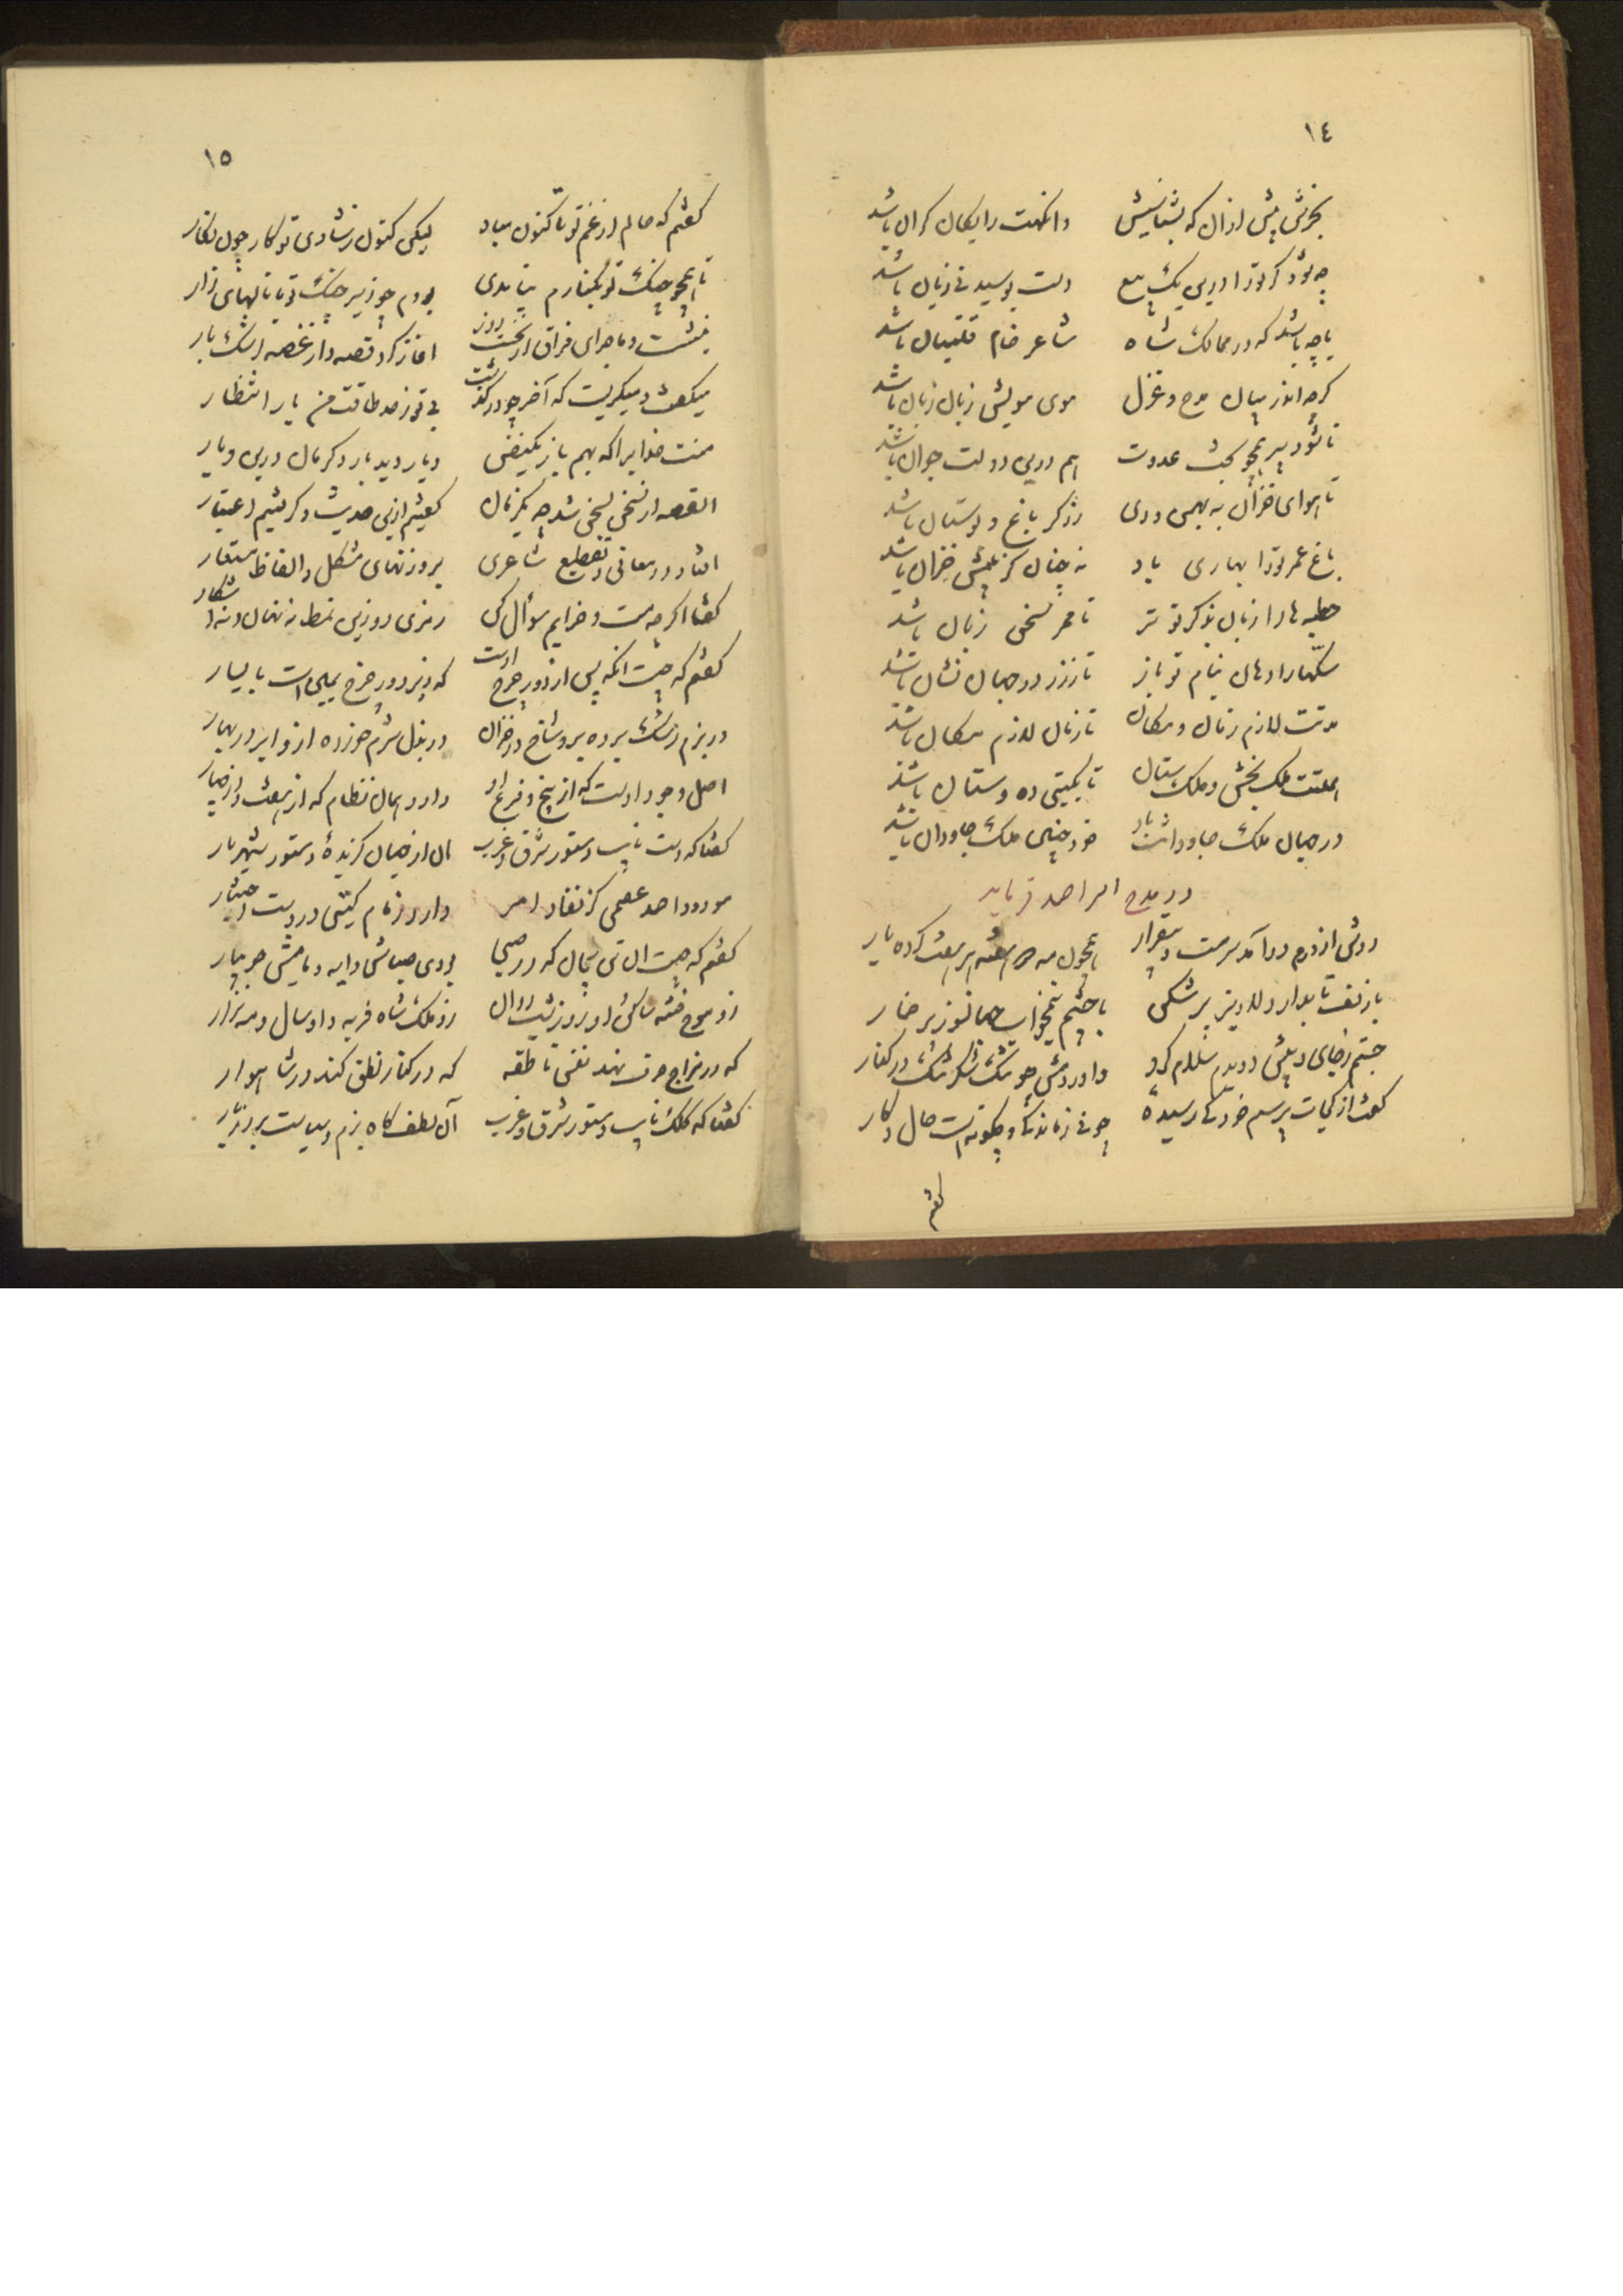 ١٤
بخرش پیش ازان که بشناسیش وانکهت رایکان کران باشد
چه شود کر ترا درین یک بیع دست بوسیدنی زیان باشد
یا چه باشد که در ممالک شاه شاعر خام قلتبان باشد
کرچه اندر میان مدح و غزل موی مویش زبان زبان باشد
تا شود پیر همچو بخت عدوت هم درین دولت جوان باشد
تا هوای خزان به بهمن و دی زرکر باغ و بوستان باشد
باغ عمر ترا بهاری باد نه چنان کز پیش خزان باشد
خطبه ها را زبان بذکر تو تر تا ممر سخن زبان باشد
سکها را دهان بنام تو باز تا ز زر در جهان نشان باشد
مدتت لازم زمان و مکان تا زمان لازم مکان باشد
همتت ملک بخش و ملک ستان تا بکیتی ده و ستان باشد
در جهان ملک جاودانت باد خود چنین ملک جاودان باشد
در مدح ابراحمد فرماید
دوش از درم درآمد سرمست و بیقرار همچون مه دو هفته و هر هفت کرده یار
با زلف تابدار دلاویز پر شکن با چشم نیم خواب جهانسوز پر خمار
جستم ز جای و پیش دویدم سلام کرد واوردمش چو تنک شکر تنک در کنار
کفت از کجات پرسم خود کی رسیده چونی ز ماندکی و چکونه است حال و کار
کفتم
١٥
کفتم که حالم از غم تو تا کنون بباد لیکن کنون ز شادی تو کار چون نکار
تا همچو چنک تو بکنارم نیامدی بودم چو زیر چنک تو با نالهای زار
بنشست و ماجرای فراق از نخست روز اغاز کرد قصه و از غصه اشک بار
میکفت و میکریست که آخر چو درکذشت بی تو ز حد طاقت من بار انتظار
منت خدایرا که بهم باز یکنفس دیار دید بار دکرمان درین دیار
القصه از سخن بسخن شد چو یکزمان کفتیم ازین حدیث و کرفتیم اعتبار
افتاد در معانی و تقطیع شاعری بر وزنهای مشکل و الفاظ مستعار
کفتا اکرچه مست و خرابم سؤال کن رمزی دو زین نمط نه نهان و نه آشکار
کفتم که چیست انکه پس از دور چرخ ازوست که در دور چرخ یمین است با یسار
در بزم رشک برده برو شاخ در خزان در بذل شرم خورده ازو ابر در بهار
اصل وجود اوست که از بیخ و فرع او دارد همان نظام که از هفت و از چهار
کفتا که دست نایب دستور شرق و غرب ان از جهان کزیده و دستور شهریار
مودود احمد عصمی کز نفاذ امر دارد زمام کیتی در دست اختیار
کفتم که چیست ان تن بیجان که در صبی بودی صباش دایه و مامیش جویبار
زو موج فتنه ساکن او روز و شب دوان زو ملک شاه فربه و او سال و مه نزار
که در مزاج حرف نهد نفس ناطقه که در کنار نطق کند در شاهوار
کفتا که کلک نایب دستور شرق و غرب آن لطف کاه بزم و سیاست بروز بار